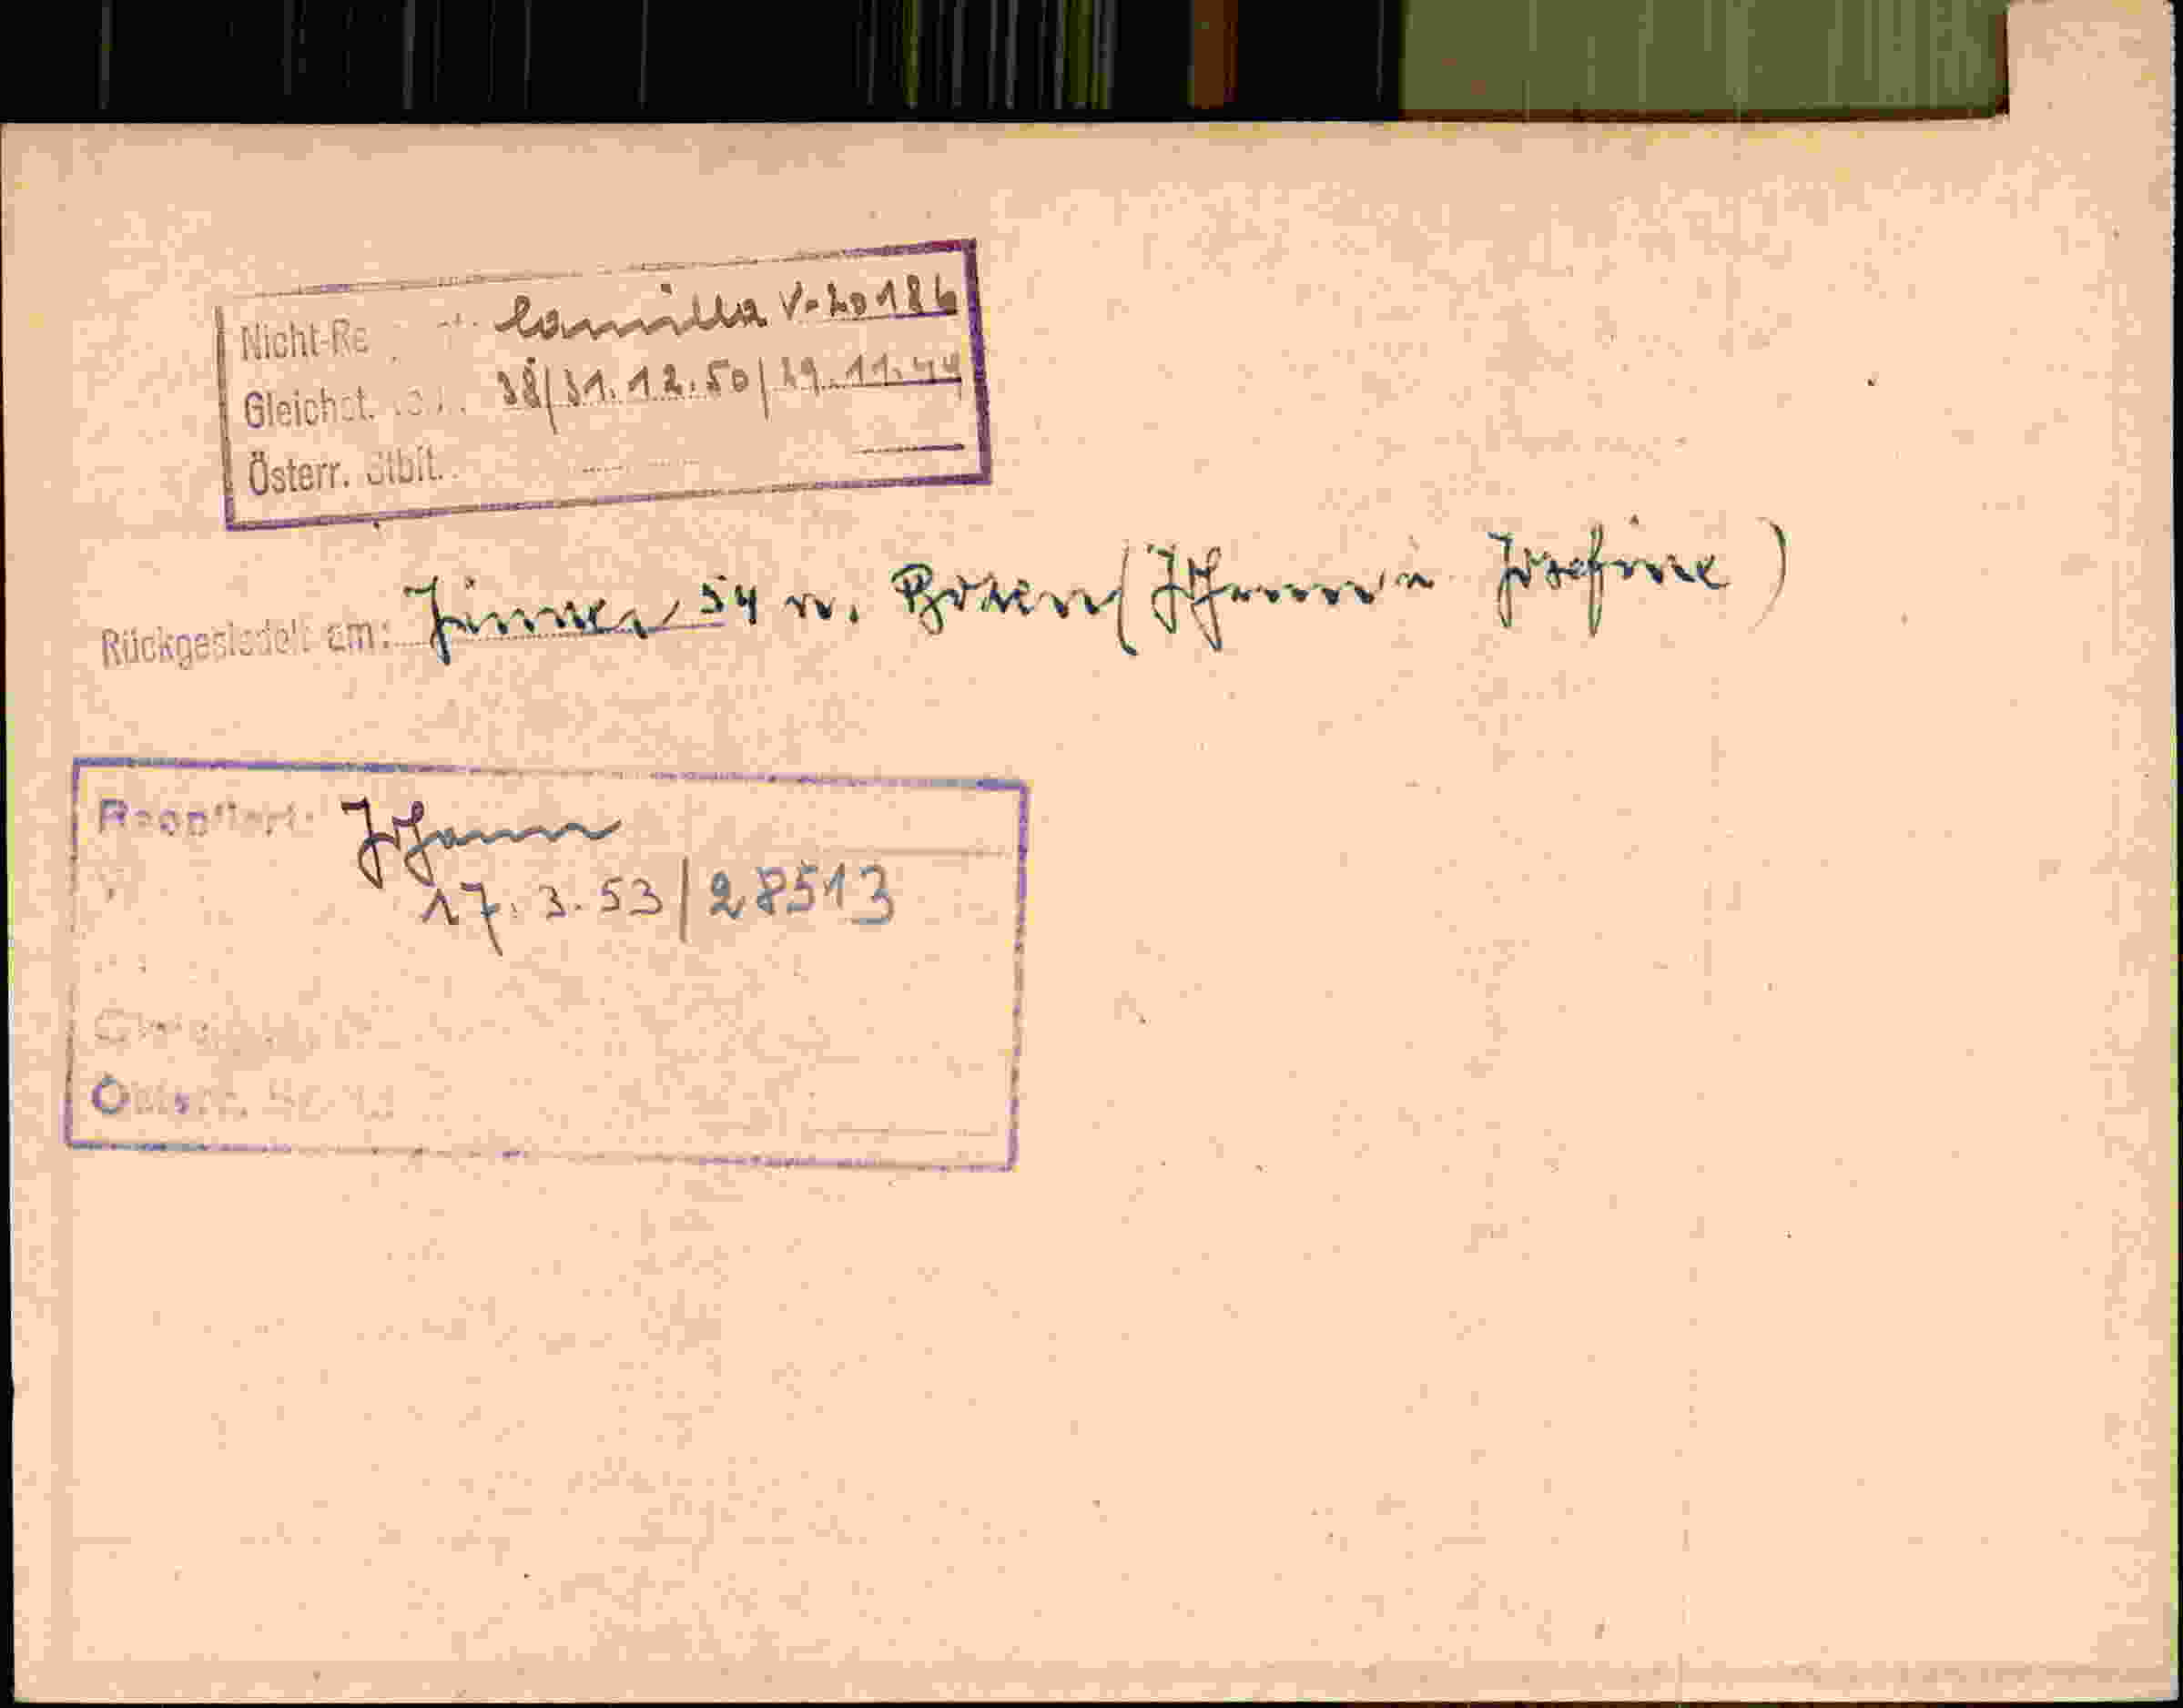 Nicht-Re Camilla V-20186
Gleichst. 38/31.12.50/29.11.44
Österr. Stbft.
Rückgesiedelt am: Jänner 54 n. Bozen (Johann u Josefine)
Reoptiert: Johann
17.3.53/28513
Österr.